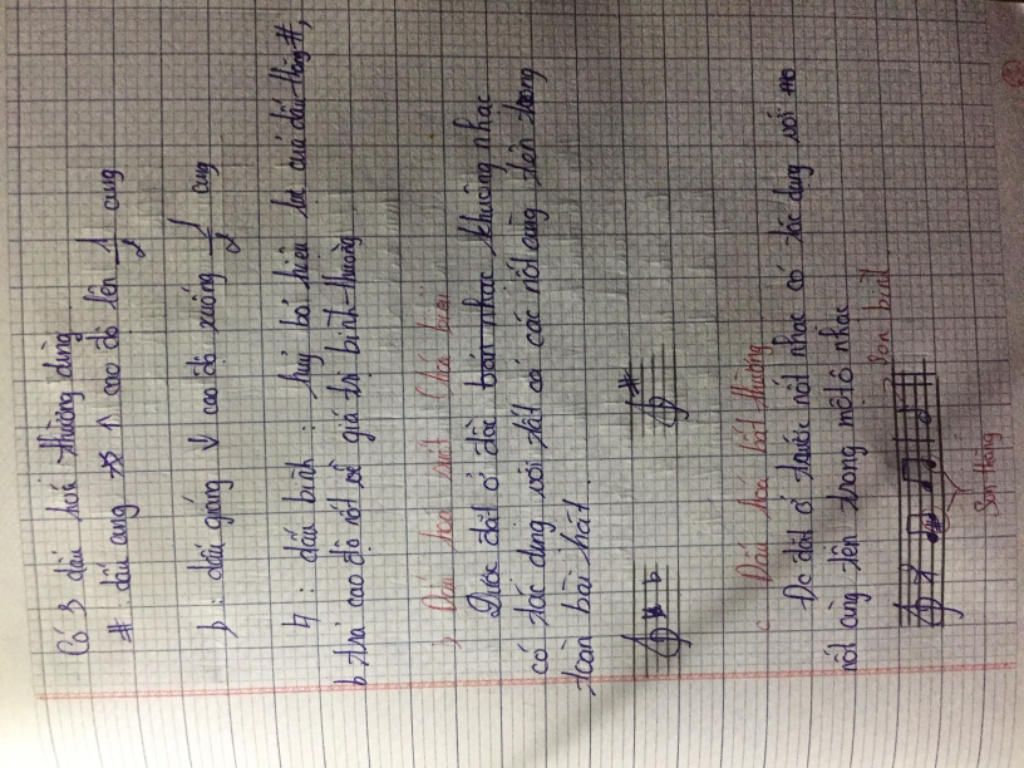 Có 3 dấu hoá thường dùng
# : dấu cung ↑ cao độ lên 1/2 cung
b : dấu giáng ↓ cao độ xuống 1/2 cung
♮ : dấu bình : huỷ bỏ hiệu lực của dấu thăng #,
b trả cao độ nốt về giá trị bình thường
b Dấu hoá suốt (hoá biểu)
Được đặt ở đầu bản nhạc khuông nhạc
có tác dụng với tất cả các nốt cùng tên trong
toàn bài hát
c Dấu hoá bất thường
Đc đặt ở trước nốt nhạc có tác dụng với
nốt cùng tên trong một ô nhạc
Son bình
Son thăng